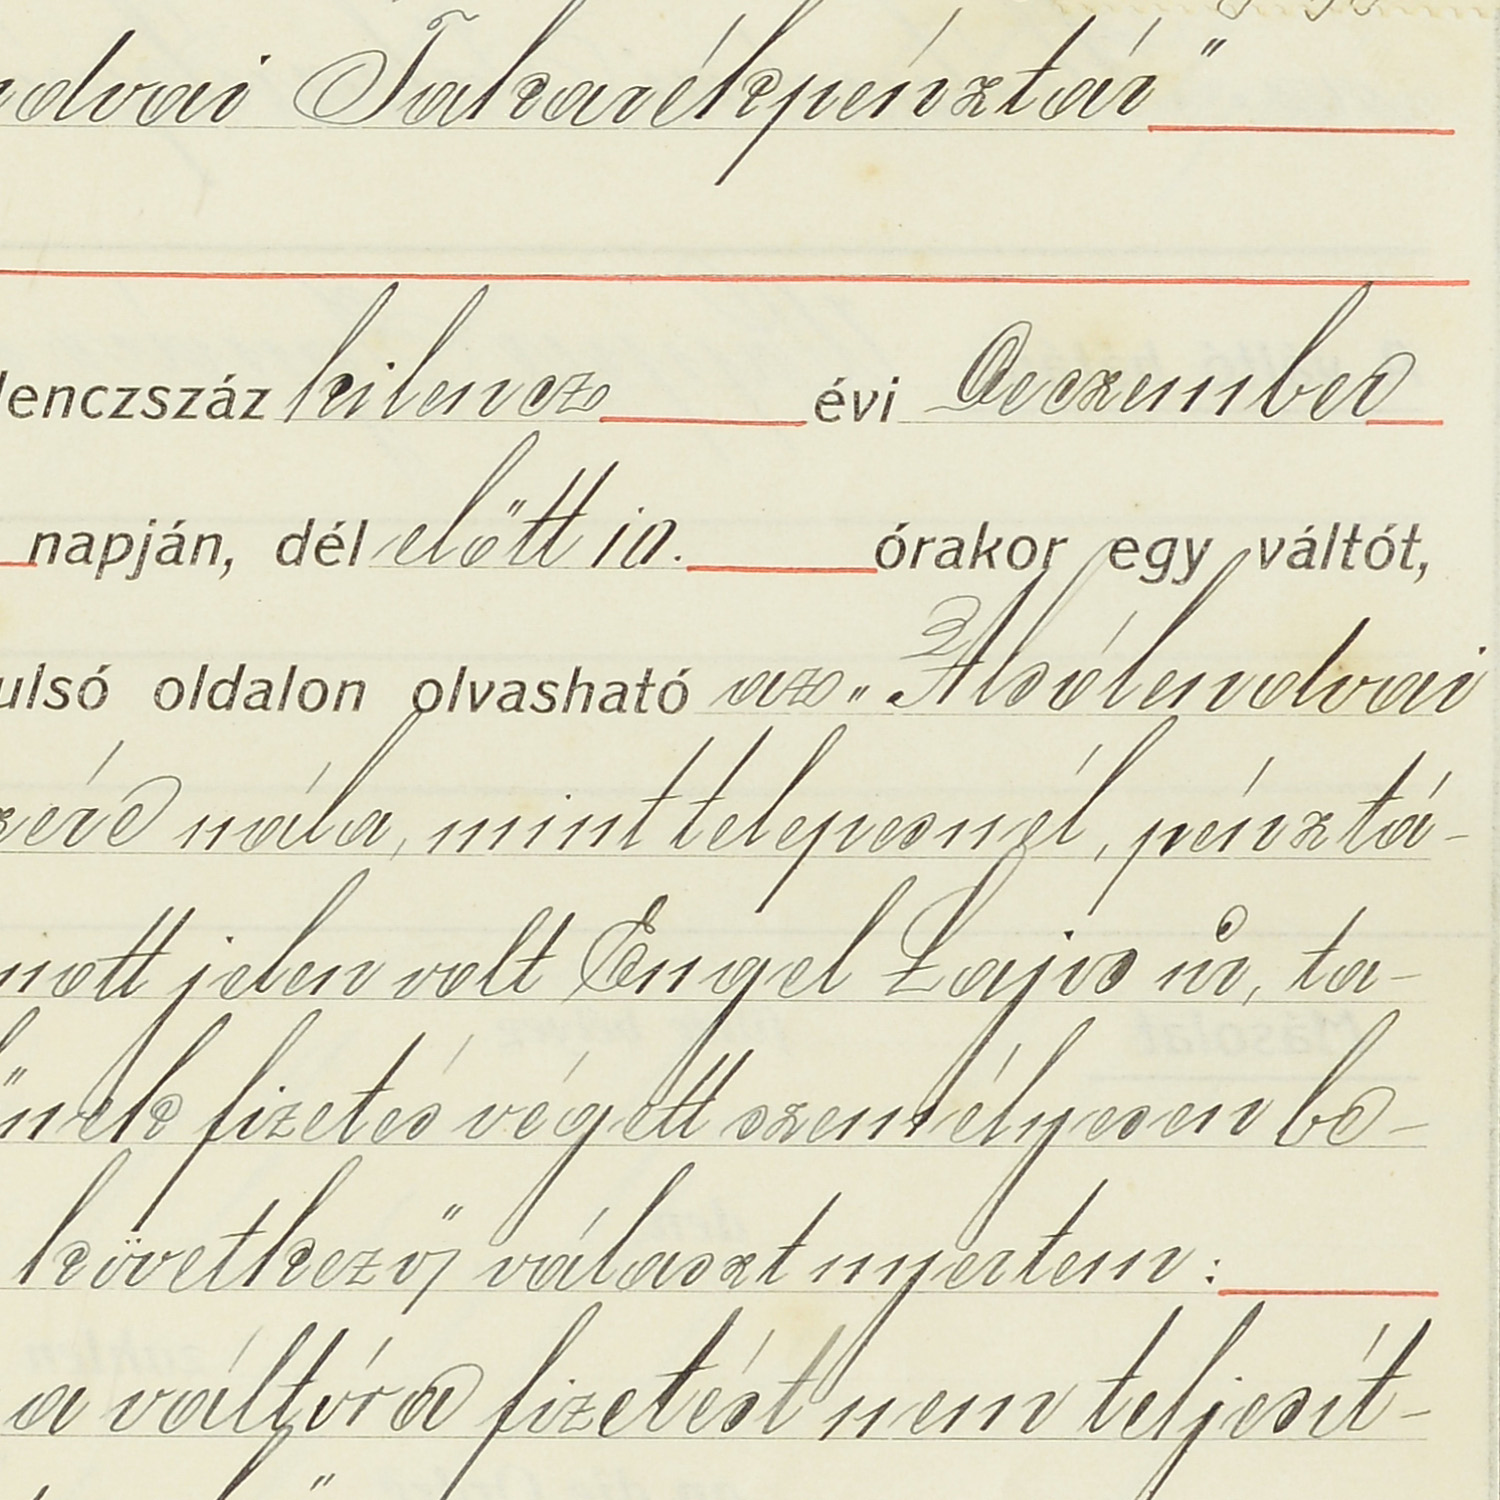 ndvai Takarékpénztár"
lenczszáz kilencz évi Deczember
napján, dél előtt 10. órakor egy váltót,
ulsó oldalon olvasható az „Alsólendvai
nála, mint telepesnél, pénztá-
jelen volt Engel Lajos úr, ta-
nek fizetés végett személyesen be-
következő választ nyertem:
a váltóra fizetést nem teljesít-